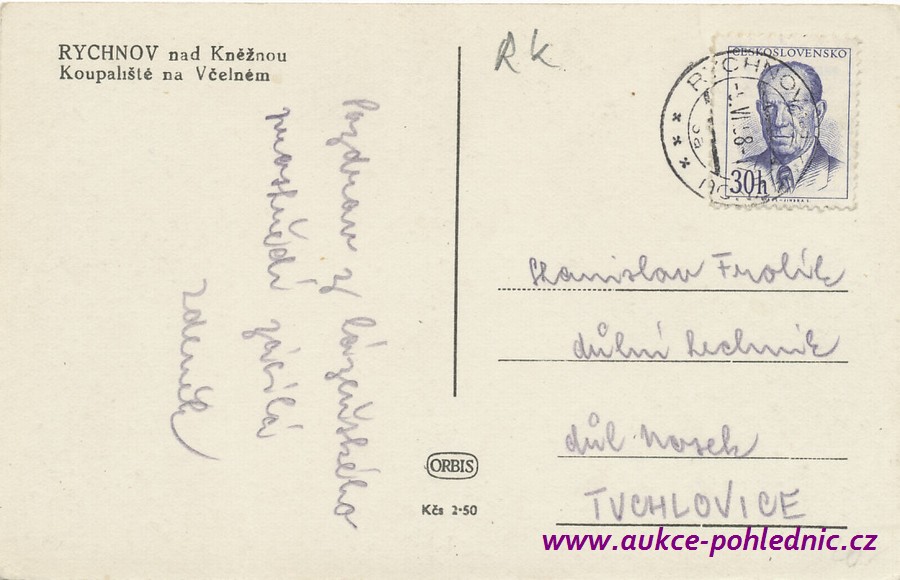 RYCHNOV nad Kněžnou
Koupaliště na Včelném
Pozdrav z lázeňského
prostředí zásílá
Zdeněk
RK
ČESKOSLOVENSKO
30h
RYCHNOV
Stanislav Frolík
důlní technik
důl Nosek
TUCHLOVICE
ORBIS
Kčs 2·50
www.aukce-pohlednic.cz